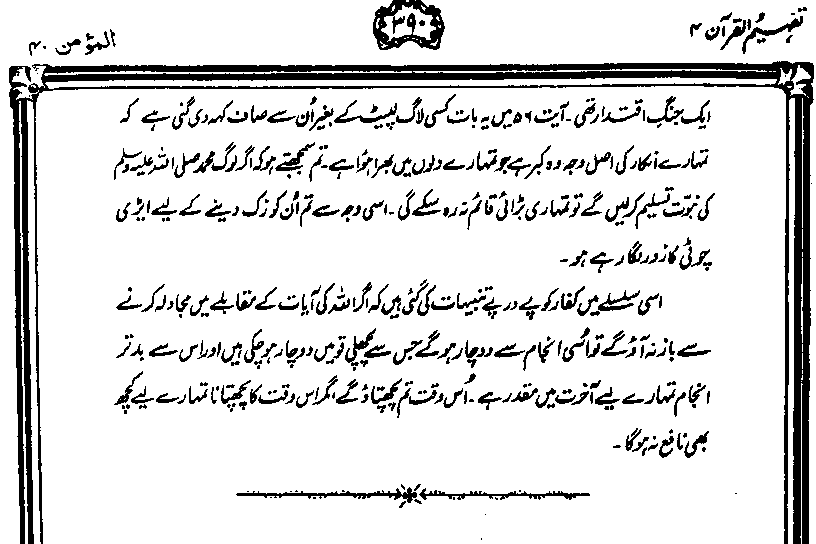 تفہیم القرآن ۴
۳۹۰
المؤمن ۴۰
ایک جنگِ اقتدار تھی۔ آیت ۵۶ میں یہ بات کسی لاگ لپیٹ کے بغیر اُن سے صاف کہہ دی گئی ہے کہ
تمہارے انکار کی اصل وجہ وہ کبر ہے جو تمہارے دلوں میں بھرا ہوا ہے۔ تم سمجھتے ہو کہ اگر لوگ محمد صلی اللہ علیہ وسلم
کی نبوّت تسلیم کرلیں گے تو تمہاری بڑائی قائم نہ رہ سکے گی۔ اسی وجہ سے تم اُن کو زک دینے کے لیے ایڑی
چوٹی کا زور لگا رہے ہو۔
اسی سلسلے میں کفار کو پے در پے تنبیہات کی گئی ہیں کہ اگر اللہ کی آیات کے مقابلے میں مجادلہ کرنے
سے باز نہ آؤ گے تو اُسی انجام سے دوچار ہو گے جس سے پچھلی قومیں دوچار ہو چکی ہیں اور اس سے بدتر
انجام تمہارے لیے آخرت میں مقدر ہے۔ اُس وقت تم پچھتاؤ گے، مگر اس وقت کا پچھتانا تمہارے لیے کچھ
بھی نافع نہ ہوگا۔